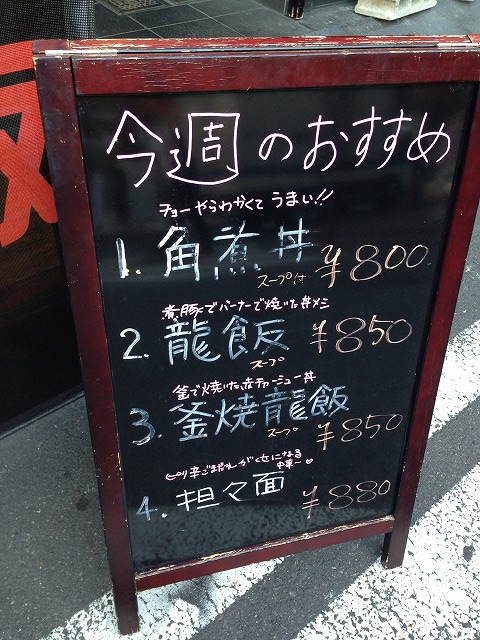 今週のおすすめ
チョーやらわかくてうまい!!
1. 角煮丼 スープ付 ¥800
煮豚でバーナーで焼いた丼メシ
2. 龍飯 スープ ¥850
釜で焼いたチャーシュー丼
3. 釜焼龍飯 スープ ¥850
ピリ辛ごまだれがくせになる
中華一♡
4. 担々面 ¥880